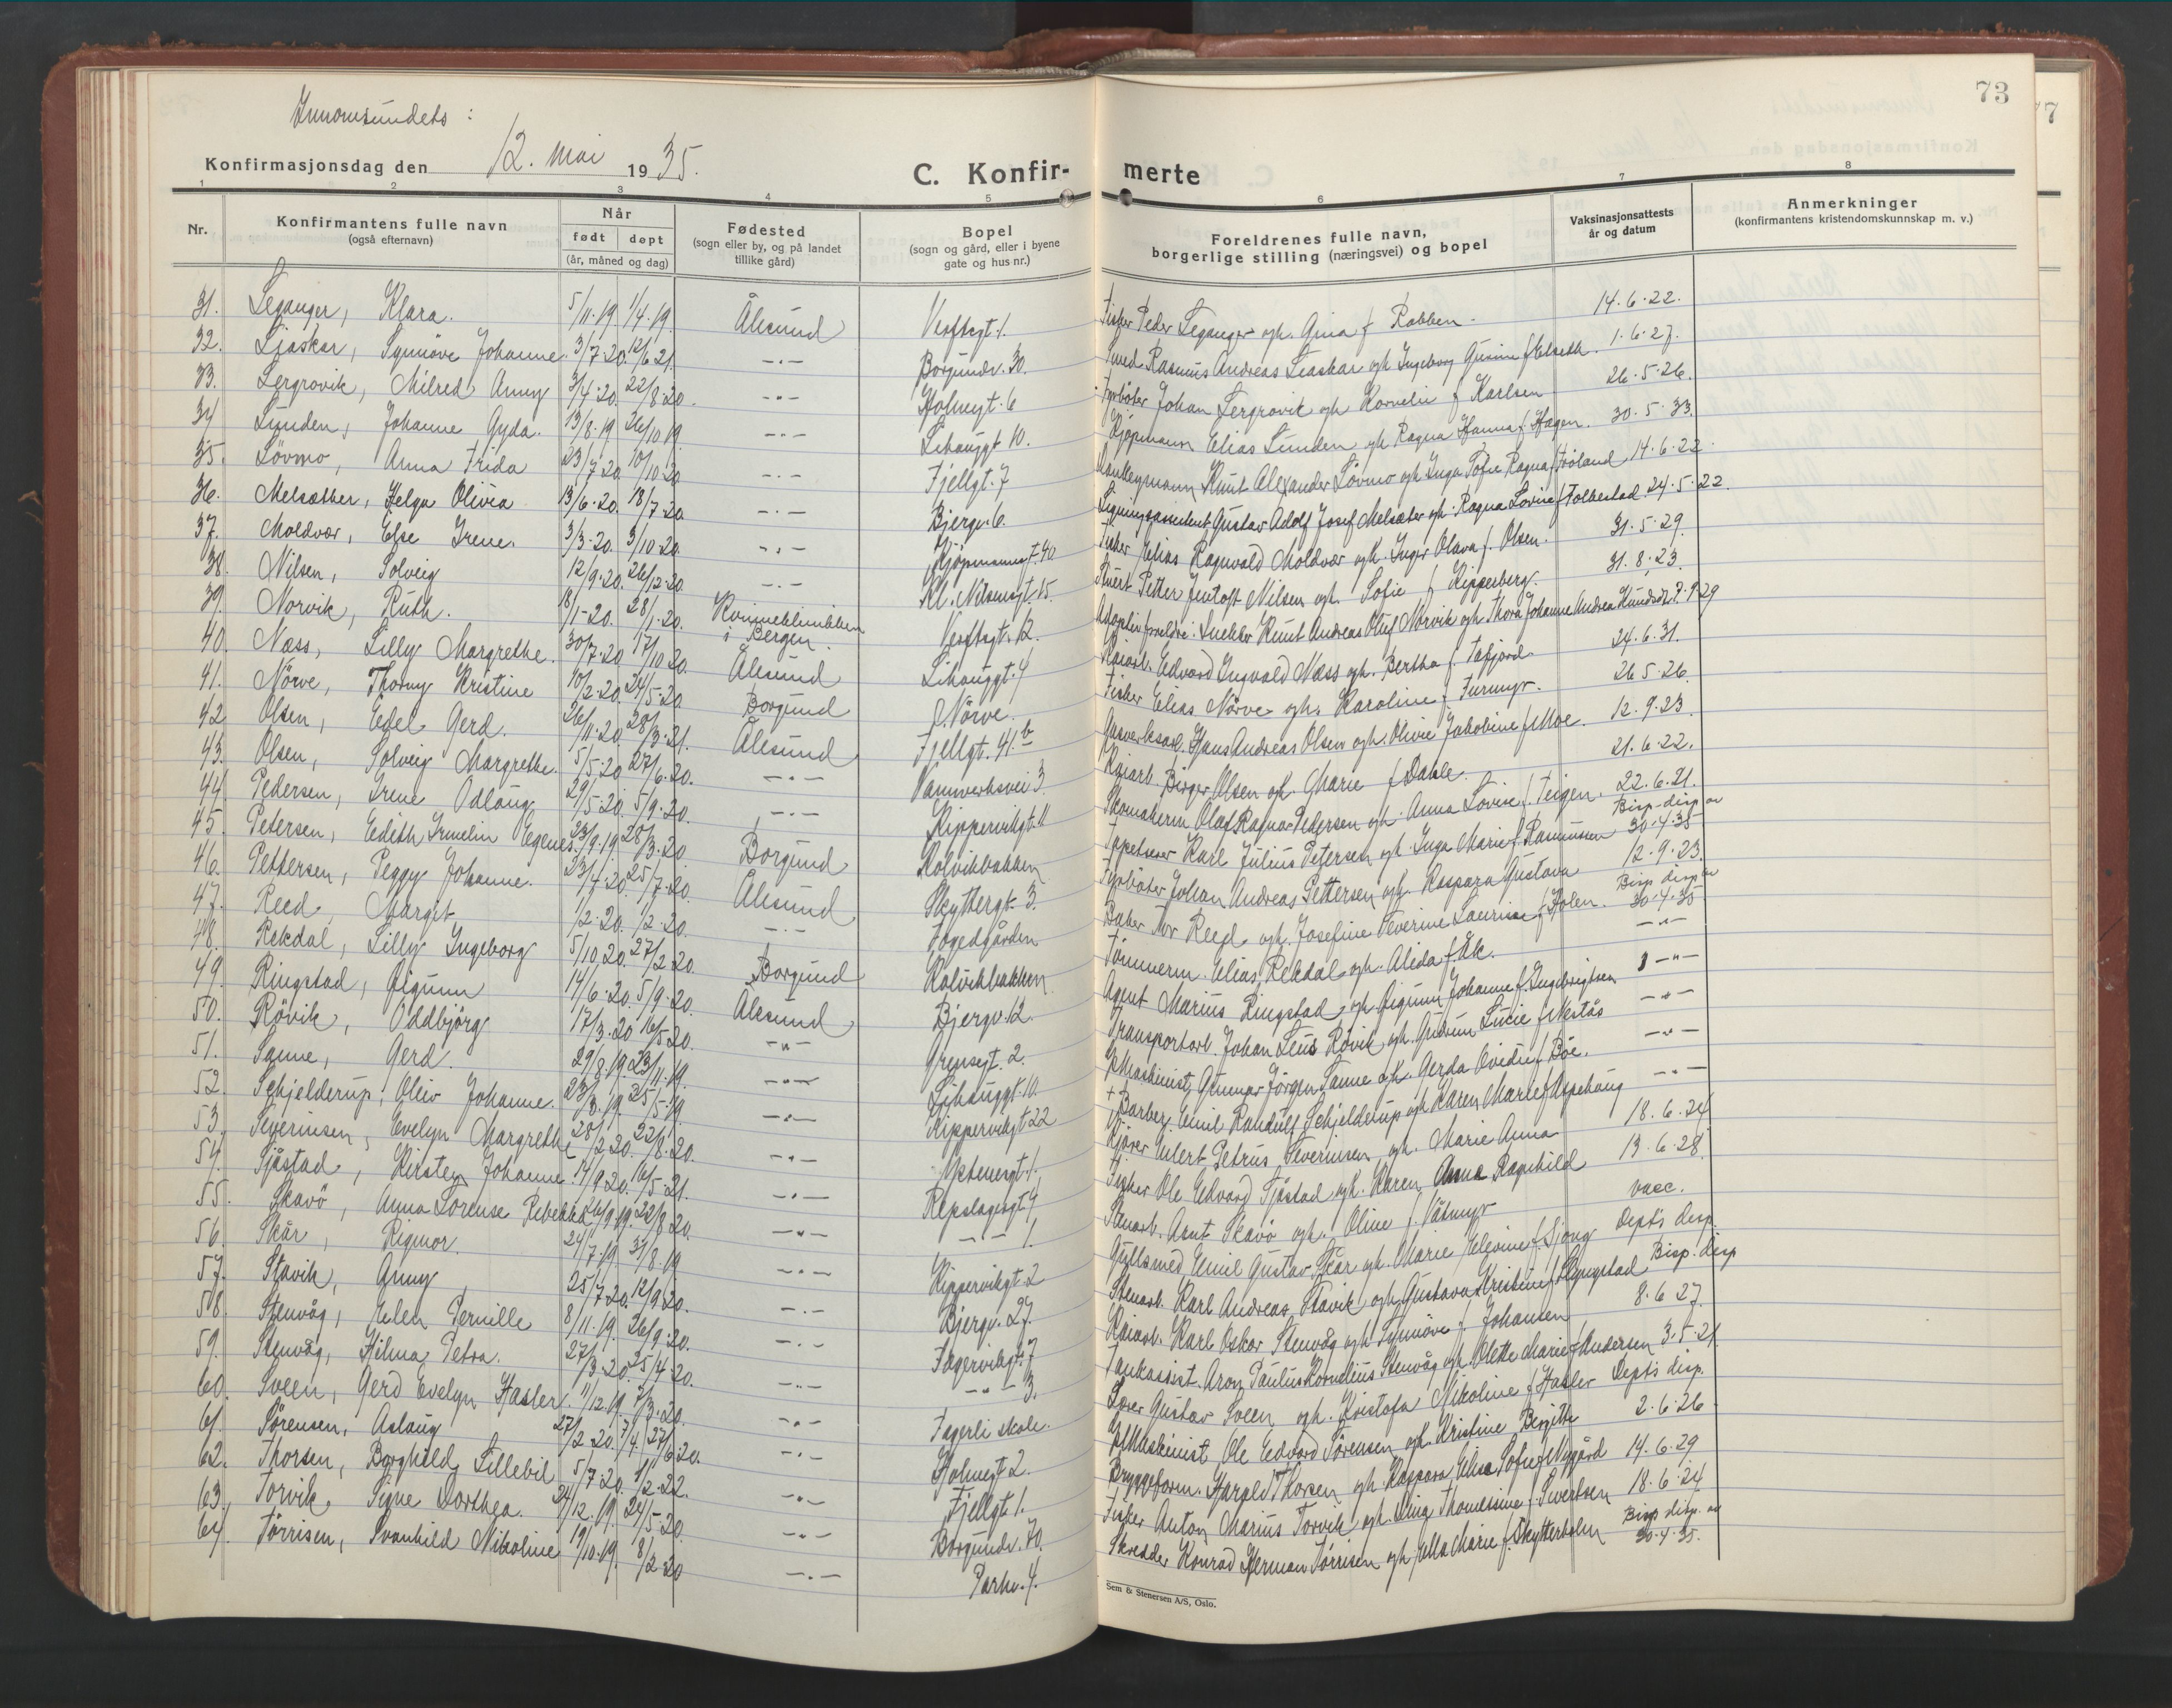 73
Innomsundets :
Konfirmasjonsdag den 12. mai 1935.
C. Konfir- merte
1 2 3 4 5 6 7 8
Nr.
Konfirmantens fulle navn
(også efternavn)
Når
født døpt
(år, måned og dag)
Fødested
(sogn eller by, og på landet
tillike gård)
Bopel
(sogn og gård, eller i byene
gate og hus nr.)
Foreldrenes fulle navn,
borgerlige stilling (næringsvei) og bopel
Vaksinasjonsattests
år og datum
Anmerkninger
(konfirmantens kristendomskunnskap m. v.)
31. Leganger, Klara. 5/11.19. 1/4.19. Ålesund Vestregt. 1. Fisker Peder Leganger og h. Gina f Rabben 14.6.22.
32. Liaskar, Synnöve Johanne. 3/7.20. 12/6 21. -"- Borgundv. 30. Smed Rasmus Andreas Liaskar og h Ingeborg Gurine f Elseth. 1.6.27.
33. Lergrovik, Milred Anny 3/4.20. 22/8.20. -"- Holmegt. 6 Fyrböter Johan Lergrovik og h Kornelie f Karlsen 26.5.26.
34 Lunden, Johanne Gyda. 13/8.19 26/10 19 -"- Lihauggt 10. Kjöpmann Elias Lunden og h Ragna Hanna f Hagen. 30.5.33.
35. Lövmo, Anna Frida 23/7.20. 10/10 20 -"- Fjellgt. 7 Knut Alexander Lövmo og h Inga Sofie Ragna f Fröland 14.6.22.
36. Melsæther, Helga Olivia 13/6.20. 18/7.20. -"- Bjergv. 6. Ligningsassistent Gustav Adolf Josef Melsæter og h. Ragna Lovise f Folkestad 24.5.22.
37. Moldvær, Else Irene. 3/3.20. 3/10.20. -"- Kjöpmannsgt 40 Fisker Elias Ragnvald Moldvær og h. Inger Olava f. Olsen. 31.5.29.
38. Nilsen, Solveig 12/9.20. 26/12.20. -"- Kl. Nilsensgt. 15. Stuert Petter Jentoft Nilsen og h. Sofie f Kipperberg. 31.8.23.
39. Norvik, Ruth. 18/1-20. 28/1.20. Kvinneklinikken i Bergen. Vestregt. 12. Adoptivforeldre: Snekker Knut Andreas Oluf Norvik og h. Thora Johanne Andrea Knudsdtr. 7.9.29
40. Næss, Lilly Margrethe. 30/7.20 17/10 20. Ålesund Lihauggt. 4 Kaiarb. Edvard Ingvald Næss og h. Bertha f. Tafjord 24.6.31.
41. Nörve, Thorny Kristine 10/2.20. 24/5.20 Borgund Nörve. Fisker Elias Nörve og h. Karoline f. Furmyr. 26 5 26.
42 Olsen, Edel Gerd. 26/11.20. 28/3.21. Ålesund Fjellgt. 41 b Gasverksarb. Hans Andreas Olsen og h. Olivie Jakobine f Moe. 12.9.23.
43. Olsen, Solveig Margrethe. 5/5.20 27/6.20. -"- Vannverksvei 3 Kaiarb. Birger Olsen og h. Marie f Dahle. 21.6.22.
44. Pedersen, Irene Odlaug 29/5.20. 5/9.20. -"- Kippervikgt. 11 Skomakerm Olaf Ragnar Pedersen og h. Anna Lovise f. Teigen. 22.6.21.
45. Petersen, Edith Irmelin Egenes. 23/9.19 28/3.20. Borgund Kolvikbakken Karl Julius Petersen og h. Inga Marie f. Rasmussen Bisp. disp av 30.4.35
46. Pettersen, Peggy Johanne. 23/4.20. 25/7.20. Ålesund Skyttergt. 3. Fyrböter Johan Andreas Pettersen og h. Kaspara Gustava 12.9.23.
47. Reed, Margit 1/2.20. 1/2.20. -"- Fogedgården Baker Mor Reed og h. Josefine Severine Laurine f. Holen. Bisp disp av 30.4.35
48. Rekdal, Lilly Ingeborg 5/10.20. 27/2.20. Borgund Kolvikbakken Tömmerm. Elias Rekdal og h. Alida f. Ek. -"-
49. Ringstad, Gigunn 14/6.20. 5/9.20. Ålesund Bjergv. 12. Agent Marius Ringstad og h. Gigunn Johanne f. Ingebrigtsen -"-
50. Rövik, Oddbjörg 17/3.20 16/5 20. -"- Grensegt. 2. Transportarb. Johan Leus Rövik og h. Gudrun Lucie f Nestås -"-
51. Sanne, Gerd. 29/8.19. 23/11.19. -"- Lihauggt 10. Maskinist Gunnar Jörgen Sanne og h. Gerda Ovidie f Böe. -"-
52. Schjelderup, Oliv Johanne. 23/3.19. 25/5.19. -"- Kippervikgt 22 + Barber Emil Randulf Schjelderup og h Karen Marie f Aspehaug -"-
53. Severinsen, Evelyn Margrethe 28/2 20. 22/8.20. -"- Nedrevergt. 1. Kjörer Eilert Petrus Severinsen og h. Marie Anna 18.6.24
54. Sjåstad, Kirsten Johanne. 14/9 20. 16/5.21. -"- Repslagergt 4. Fisker Ole Edvard Sjåstad og h. Karen Anna Ragnhild 13.6.28.
55. Skavö, Anna Lorense Rebekka 26/9.19. 22/8 20. -"- - " - 1. Stenarb. Arnt Skavö og h. Oline f. Våtmyr vacc.
56. Skår, Rigmor. 24/7.19. 31/8.19 -"- Kippervikgt. 2 Gullsmed Emil Gustav Skår og h. Marie Elevine f. Sjong Dept's disp.
57. Slavik, Anny 25/7.20. 12/9 20. -"- Bjergv. 27. Stenarb. Karl Andreas Slavik og h. Gustava Kristine f. Slyngstad Bisp. disp
58. Stenvåg, Ellen Pernille 8/11.19. 26/9.20. -"- Fagervikgt. 7 Kaiarb. Karl Oskar Stenvåg og h. Synnöve f. Johansen 8.6 27.
59. Stenvåg, Hilma Petra. 27/3.20. 25/4 20. -"- - " - 3. Tankassist. Aron Paulus Kornelius Stenvåg og h. Olette Marie f Andersen 3.5.21.
60. Sveen, Gerd Evelyn Hasler. 11/12.19. 7/3.20. -"- Fagerli skole Lærer Gustav Sveen og h. Kristofa Nikoline f Hasler Dept's disp.
61. Sörensen, Aslaug 27/2.20. 27/6.20. -"- Holmegt 2. Maskinist Ole Edvard Sörensen og h. Kristine Bergitte 2.6.26.
62. Thorsen, Borghild Lillebil 5/7.20. 1/2.22. -"- Fjellgt. 1. Bryggeform. Harald Thorsen og h. Kaspara Elise Sofie f Nygård 14.6.29
63. Torvik, Signe Dorthea. 24/12.19. 24/5.20 -"- Borgundv. 70. Fisker Anton Marius Torvik og h. Lina Thomassine f. Sivertsen 18.6.24
64. Törrisen, Svanhild Nikoline 19/10.19. 8/2.20 -"- Parkv. 4. Skredder Konrad Herman Törrisen og h. Ella Marie f. Skytterholm Bisp disp. av 30.4.35.
Sem & Stenersen A/S, Oslo.